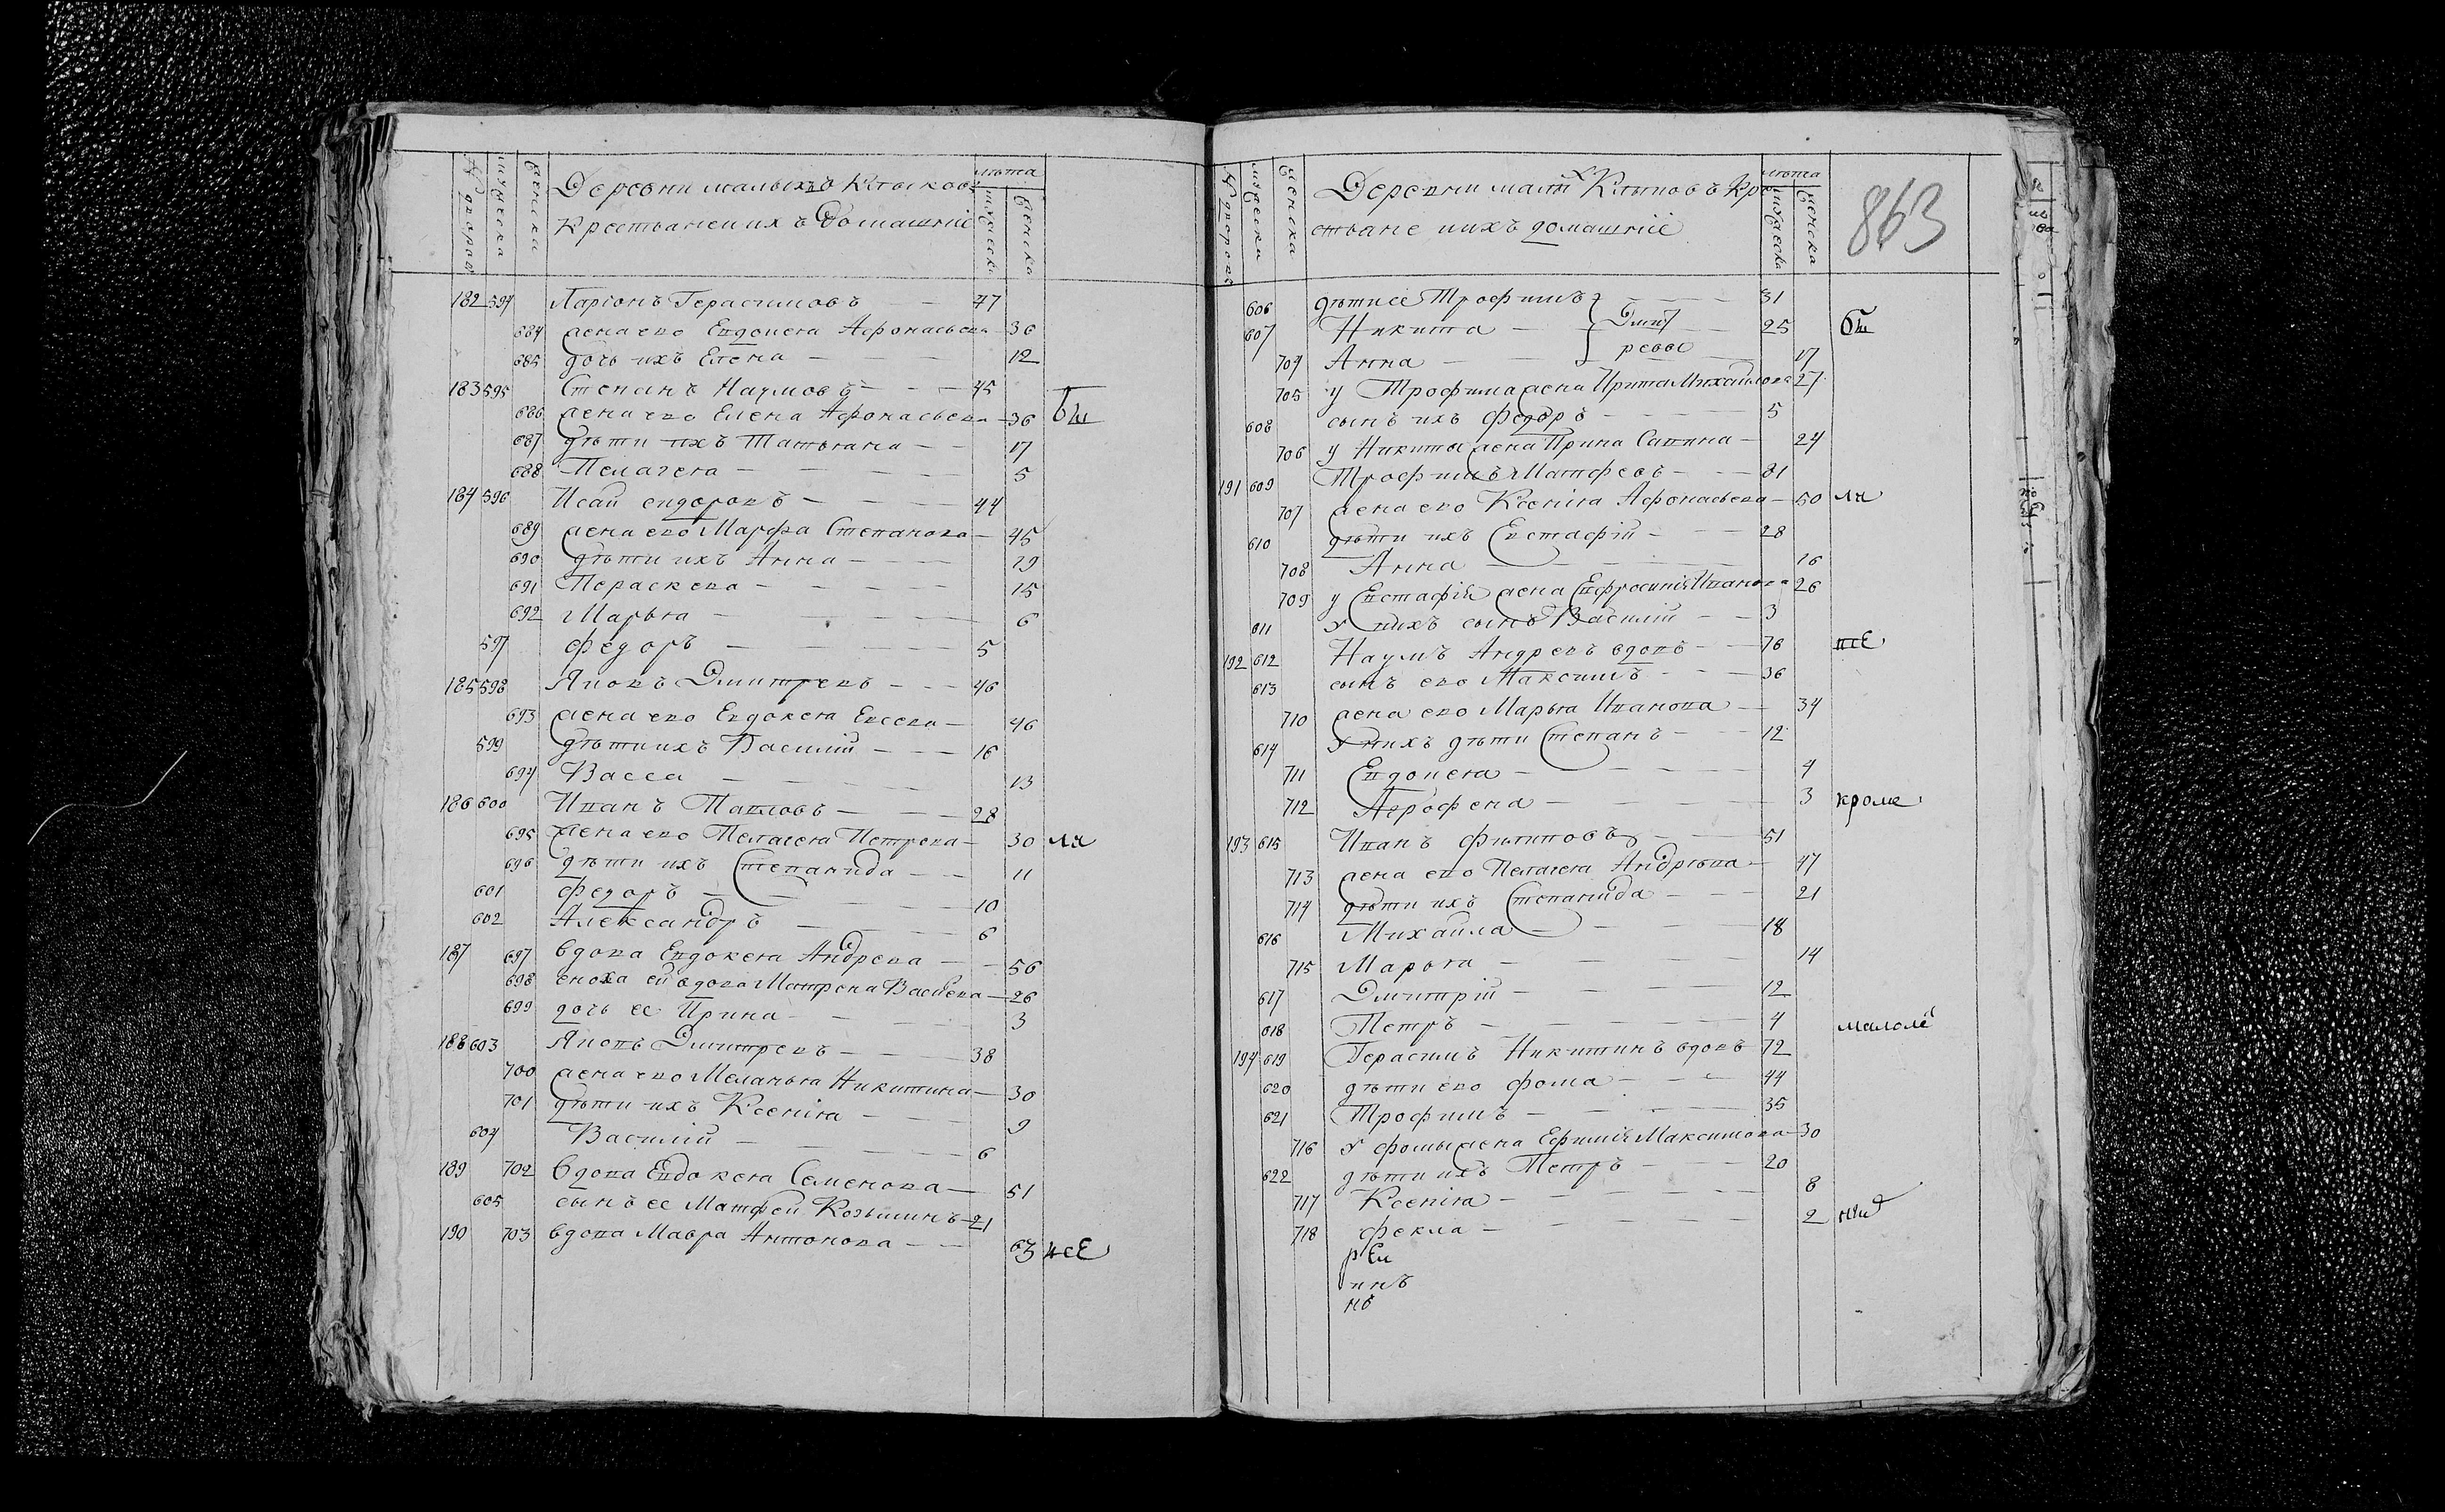 № дворовъ мужеска женска Деревни малыхъ Клыковъ лѣта
Крестьяне и ихъ домашніе мужеска женска
182 594 Ларіонъ Герасимовъ 47
684 жена ево Евдокея Афонасьева 36
685 дочь ихъ Елена 12
183 595 Степанъ Наумовъ 45
686 жена ево Елена Афонасьева 36 бы
687 дѣти ихъ Татьяна 17
688 Пелагея 5
184 596 Исай сидоровъ 44
689 жена ево Марфа Степанова 45
690 дѣти ихъ Анна 19
691 Пераскева 15
692 Марья 6
597 федоръ 5
185 598 Яковъ Дмитревъ 46
693 жена ево Евдокея Евсева 46
599 дѣти ихъ Василій 16
694 Васса 13
186 600 Иванъ Павловъ 28
695 жена ево Пелагея Петрова 30 ли
696 дѣти ихъ Степанида 11
601 федоръ 10
602 Александръ 6
187 697 вдова Евдокея Андрева 56
698 сноха ей вдова Матрена Васильева 26
699 дочь ее Ирина 3
188 603 Яковъ Дмитревъ 38
700 жена ево Меланья Никитина 30
701 дѣти ихъ Ксенія 9
604 Василій 6
189 702 вдова Евдокея Семенова 51
605 сынъ ее Матфей Козьминъ 21
190 703 вдова Мавра Антонова 63 исе
№ дворовъ мужеска женска Деревни малых Клыковъ Кре лѣта
стьяне иихъ домашніе мужеска женска 863
606 дѣти ее Трофимъ 31
607 Никита Дмит 25 бы
704 Анна рева 17
705 у Трофима жена Ирина Михайлова 27
608 сынъ ихъ федоръ 5
706 у Никиты жена Ирина Савина 24
191 609 Трофимъ Матфеевъ 81
707 жена ево Ксенія Афонасьева 50 ли
610 дѣти ихъ Евстафій 28
708 Анна 16
709 у Евстафія жена Ефросинія Иванова 26
611 у нихъ сынъ Василій 3
192 612 Наумъ Андревъ вдовъ 76
613 сынъ ево Максимъ 36
710 жена ево Марья Иванова 34
614 у нихъ дѣти Степанъ 12
711 Евдокея 4
712 Агрофена 3 кроме
193 615 Иванъ филиповъ 51
713 жена ево Пелагея Андрѣва 47
714 дѣти ихъ Степанида 21
616 Михаила 18
715 Марья 14
617 Дмитрій 12
618 Петръ 4 малолѣ
194 619 Герасимъ Никитинъ вдовъ 72
620 дѣти ево фома 44
621 Трофимъ 35
716 у фомы жена Ефимія Максимова 30
622 дѣти ихъ Петръ 20
717 Ксенія 8
718 фекла 2